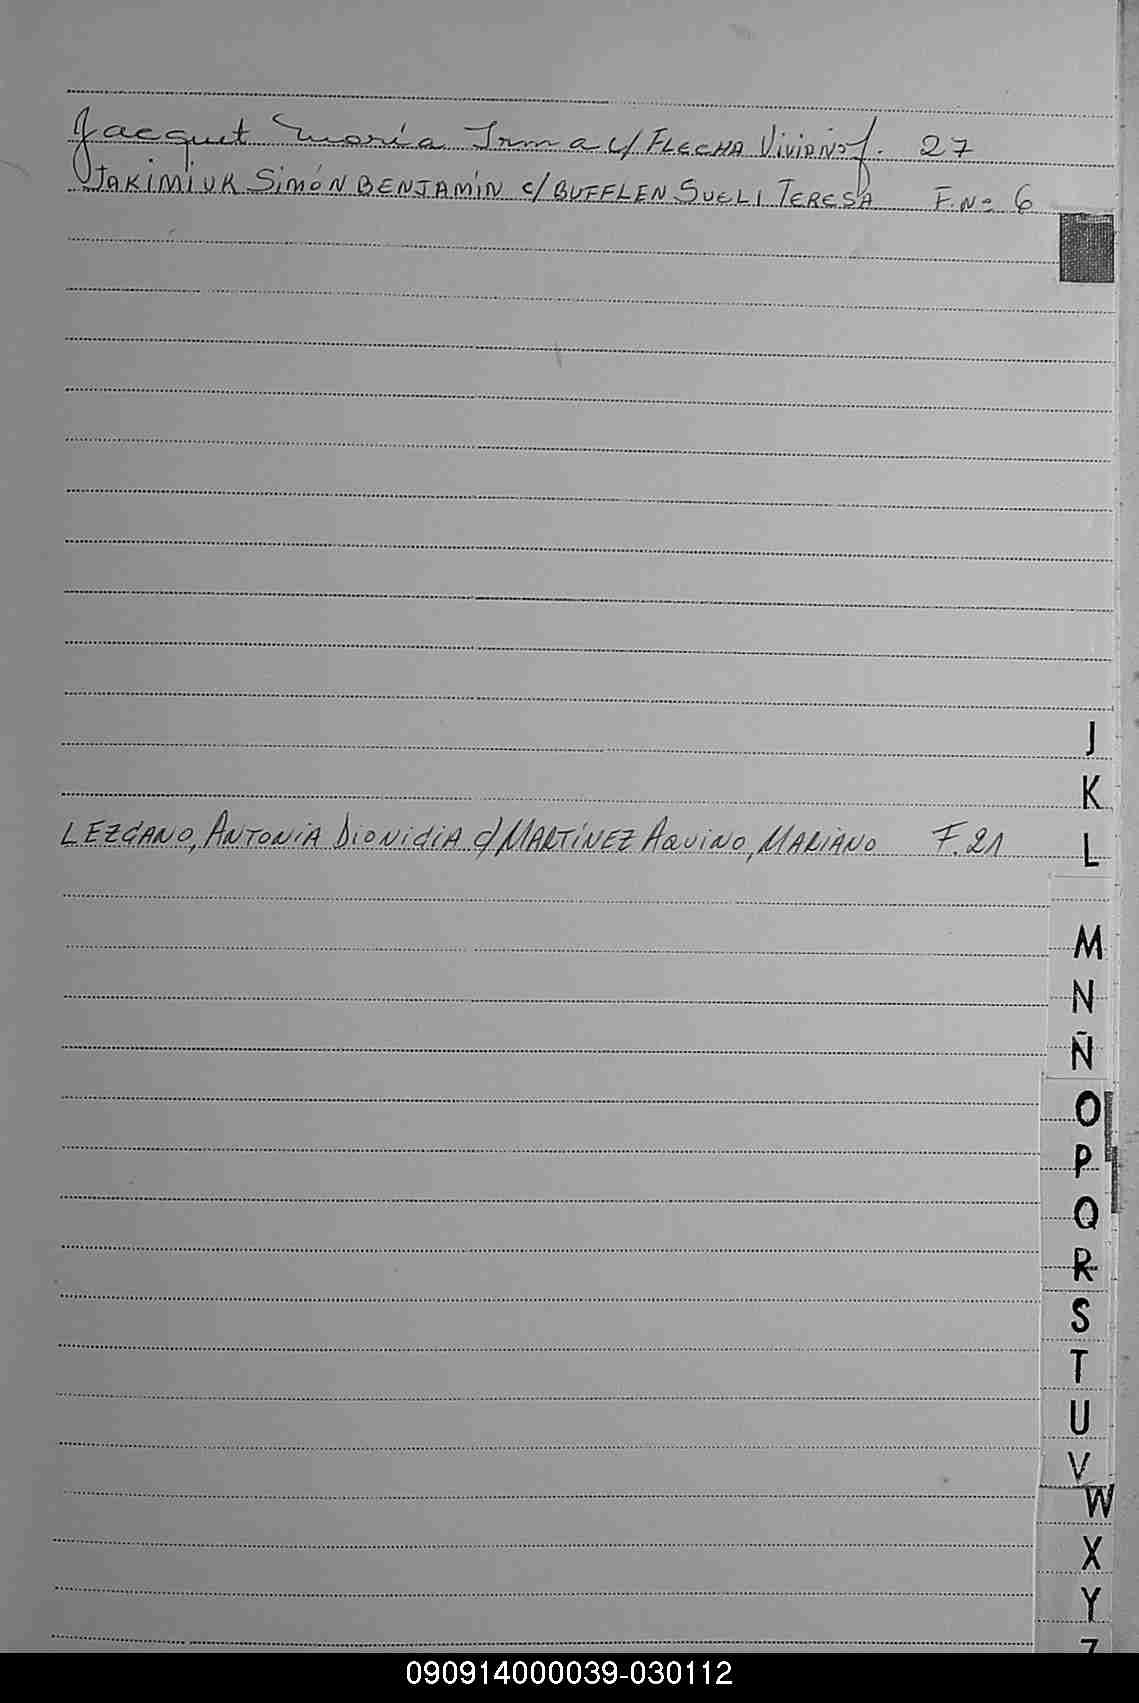 Jacquet María Irma c/ FLECHA Viviano f. 27
JAKIMIUK SIMÓN BENJAMÍN c/ BUFFLEN SUELI TERESA F.Nº 6
J
K
LEZCANO, ANTONIA DIONICIA c/ MARTÍNEZ AQUINO, MARIANO F.21
L
M
N
Ñ
O
P
Q
R
S
T
U
V
W
X
Y
Z
090914000039-030112